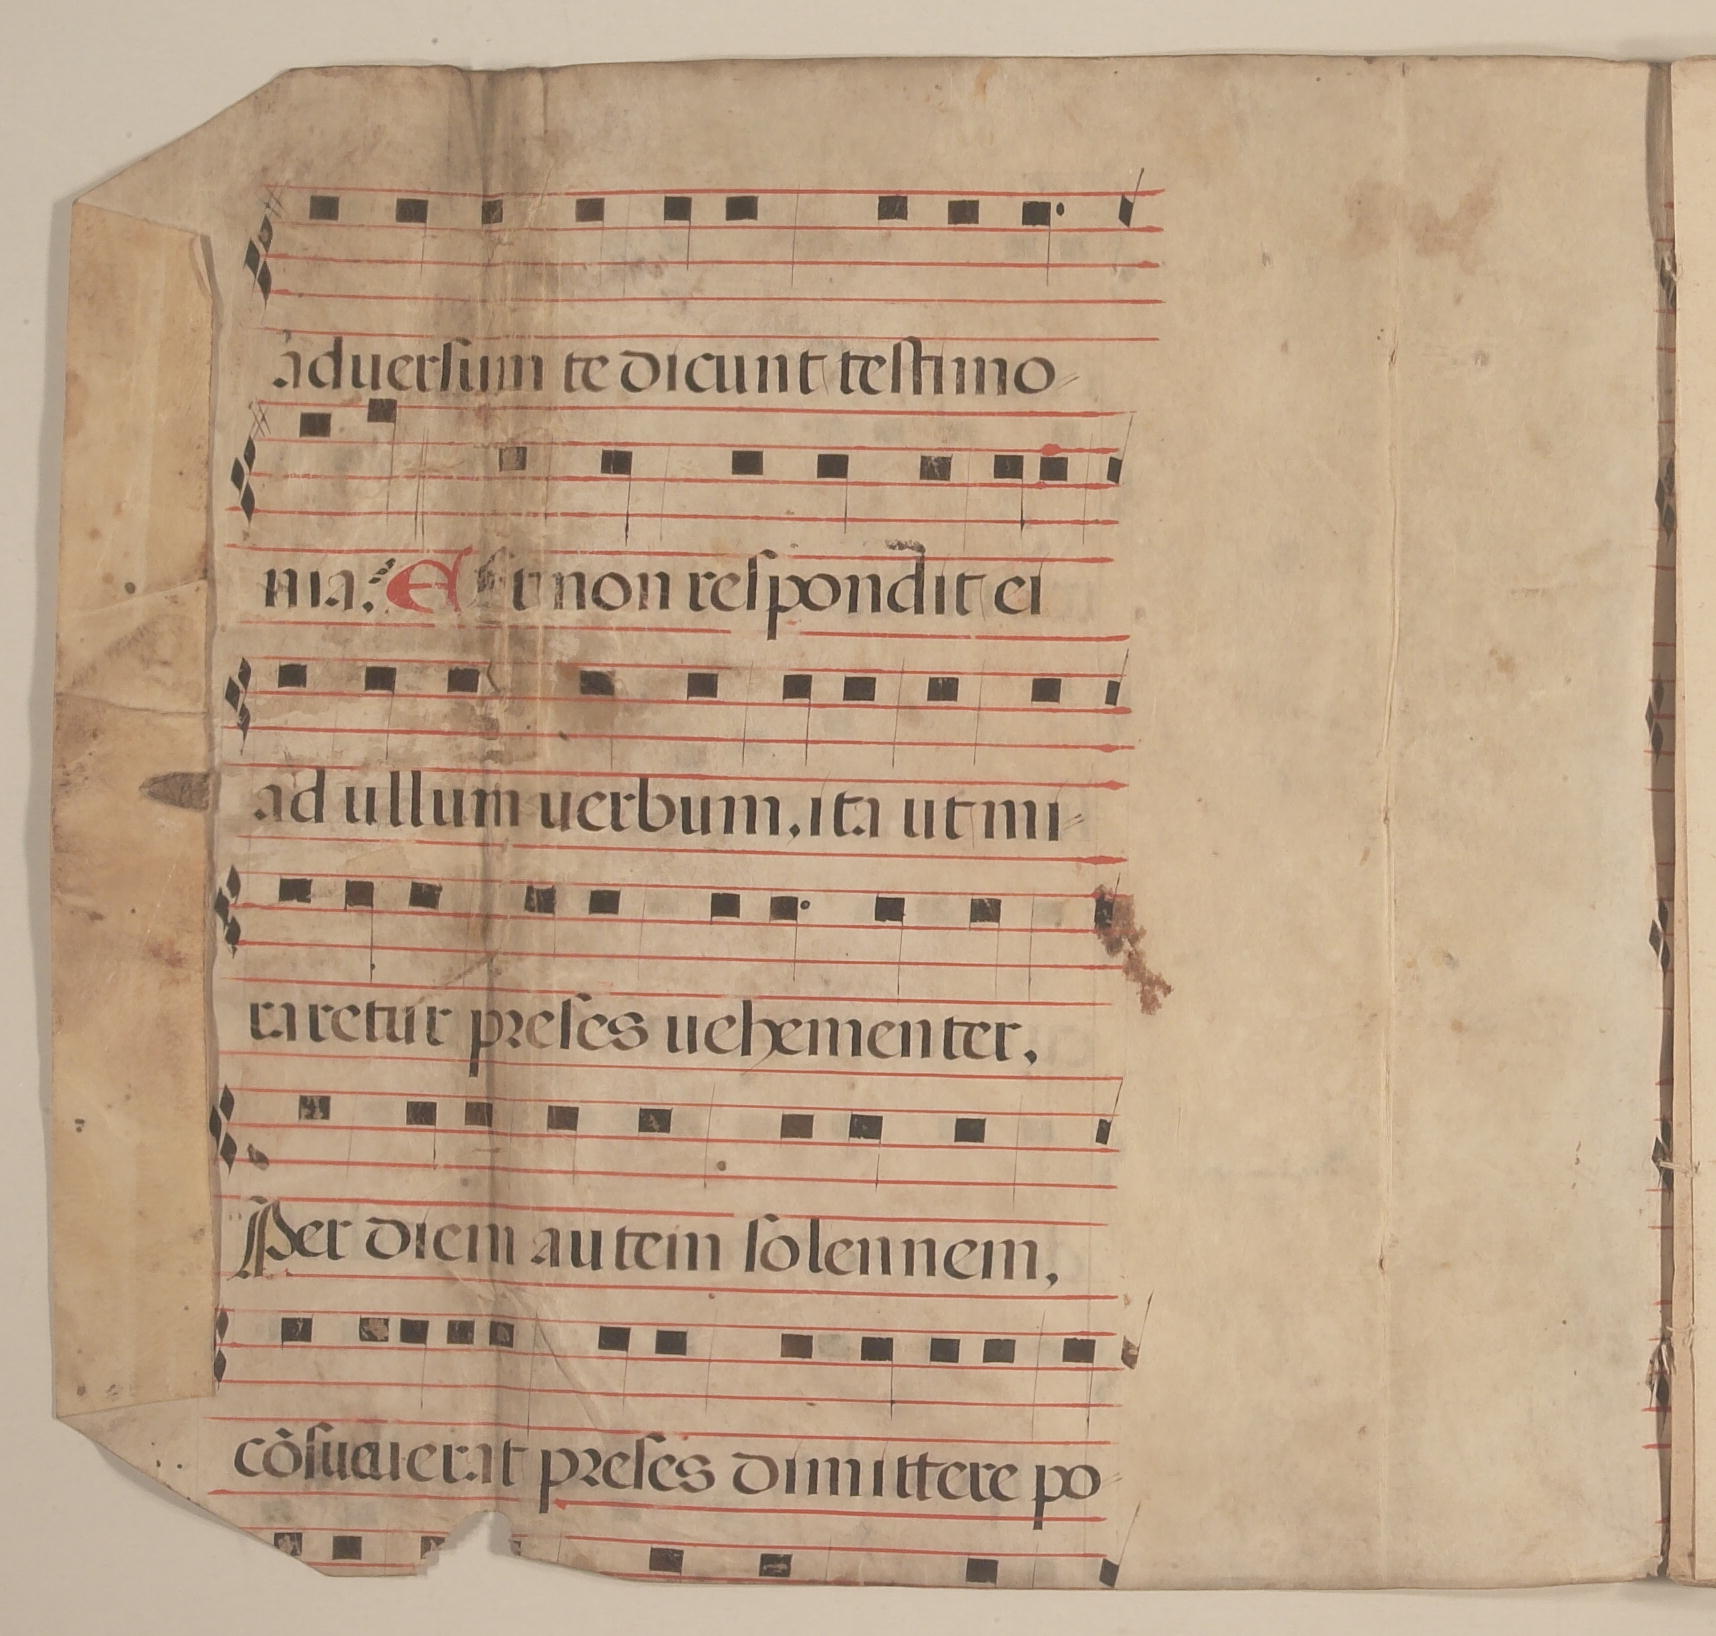 aduersum te dicunt testimo-
nia. Et non respondit ei
ad ullum uerbum, ita ut mi-
raretur preses uehementer,
Per diem autem solennem,
cōsueuerat preses dimittere po-